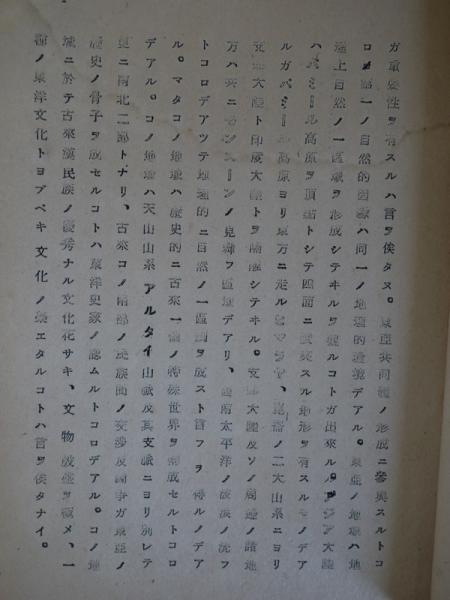 ガ重要性ヲ有スルハ言ヲ俟タヌ。東亞共同體ノ形成ニ參與スルトコ
ロノ第一ノ自然的因素ハ同一ノ地理的環境デアル。東亞ノ地域ハ地
理上自然ノ一區域ヲ形成シテキルヲ見ルコトガ出來ル。アジア大陸
ハパミール高原ヲ頂點トシテ四面ニ武英スル地形ヲ有スルモノデア
ルガパミール高原ヨリ東方ニ走ルヒマラヤ、崑崙ノ二大山系ニヨリ
支那大陸ト印度大陸トヲ隔離シテキル。支那大陸及ソノ周邊ノ諸地
方ハ共ニモンスーンノ見舞フ區地デアリ、西南太平洋ノ波浪ノ洗フ
トコロデアツテ地理的ニ自然ノ一區劃ヲ成スト言フヲ得ルノデア
ル。マタコノ地域ハ歴史的ニ古來一個ノ特殊世界ヲ構成セルトコロ
デアル。コノ地域ハ天山山系アルタイ山嶽及其支脈ニヨリ別レテ
更ニ南北二部トナリ、古來コノ兩部ノ民族間ノ交渉及鬪爭ガ東亞ノ
歴史ノ骨子ヲ成セルコトハ東洋史家ノ認ムルトコロデアル。コノ地
域ニ於テ古來漢民族ノ優秀ナル文化花サキ、文物殷盛ヲ極メ、一
種ノ東洋文化トヨブベキ文化ノ榮エタルコトハ言ヲ俟タナイ。